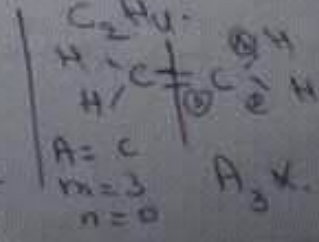 C₂H₄.
H C = C H
H H
A = C
m = 3
n = 0
A₃X.